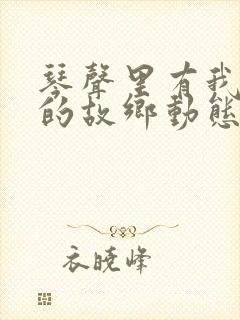 琴聲里有我
的故鄉動態
衣曉峰